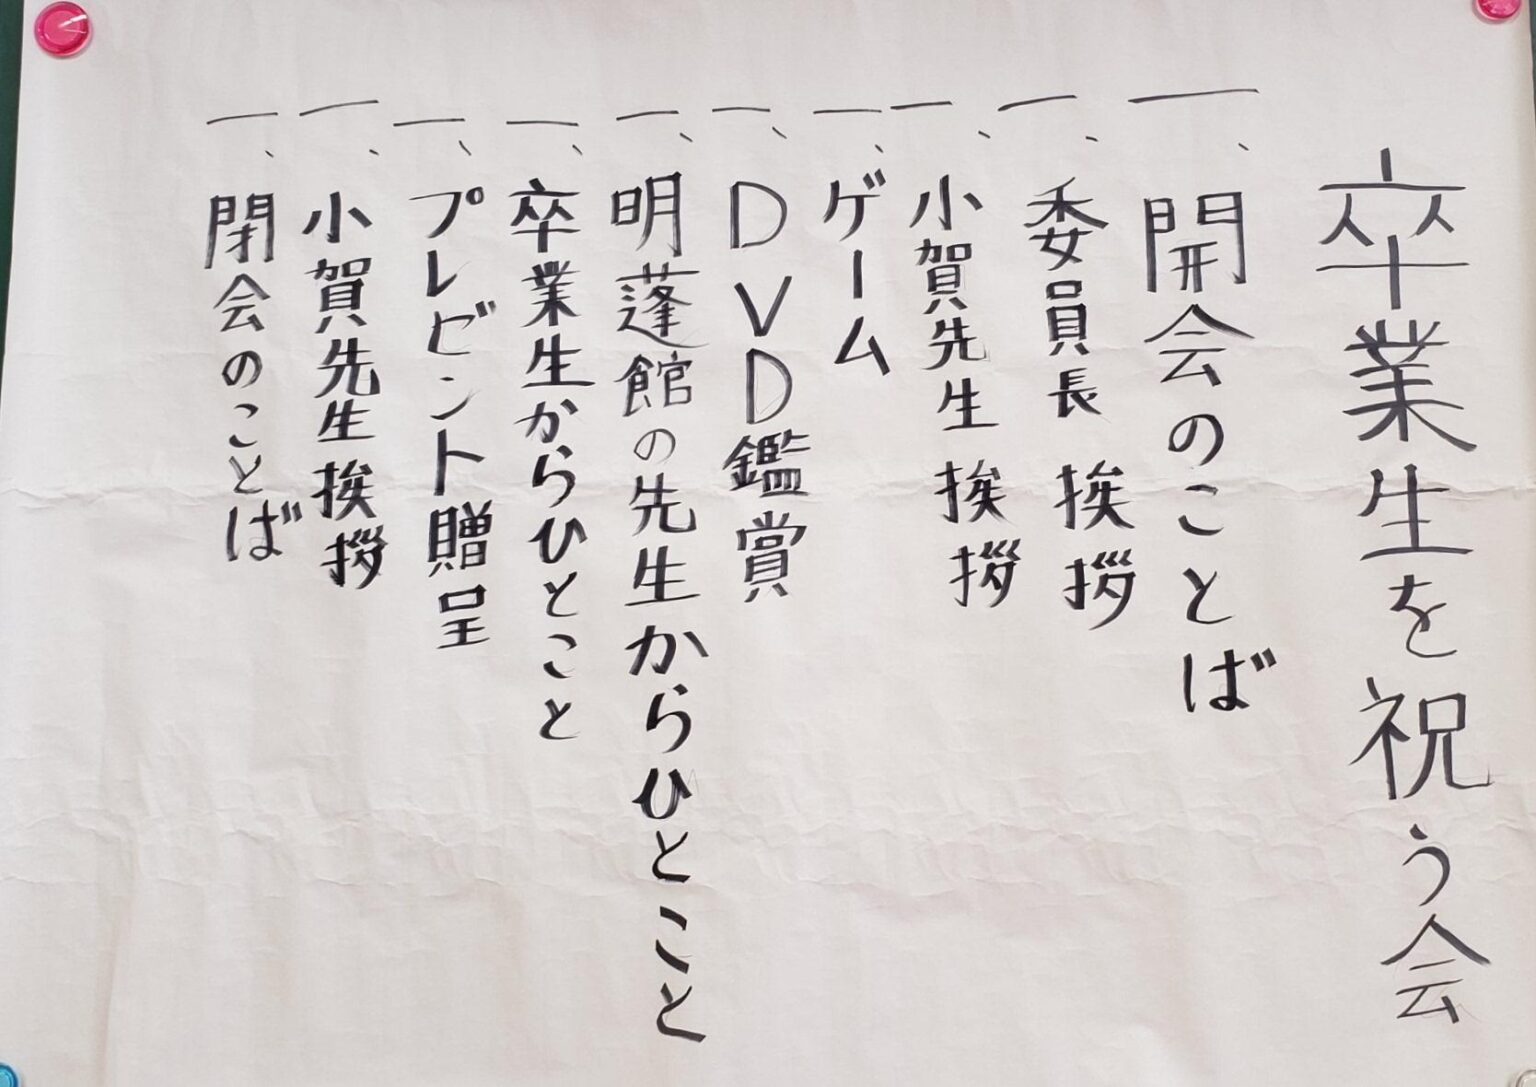 卒業生を祝う会
一、開会のことば
一、委員長挨拶
一、小賀先生挨拶
一、ゲーム
一、DVD鑑賞
一、明蓬館の先生からひとこと
一、卒業生からひとこと
一、プレゼント贈呈
一、小賀先生挨拶
一、閉会のことば